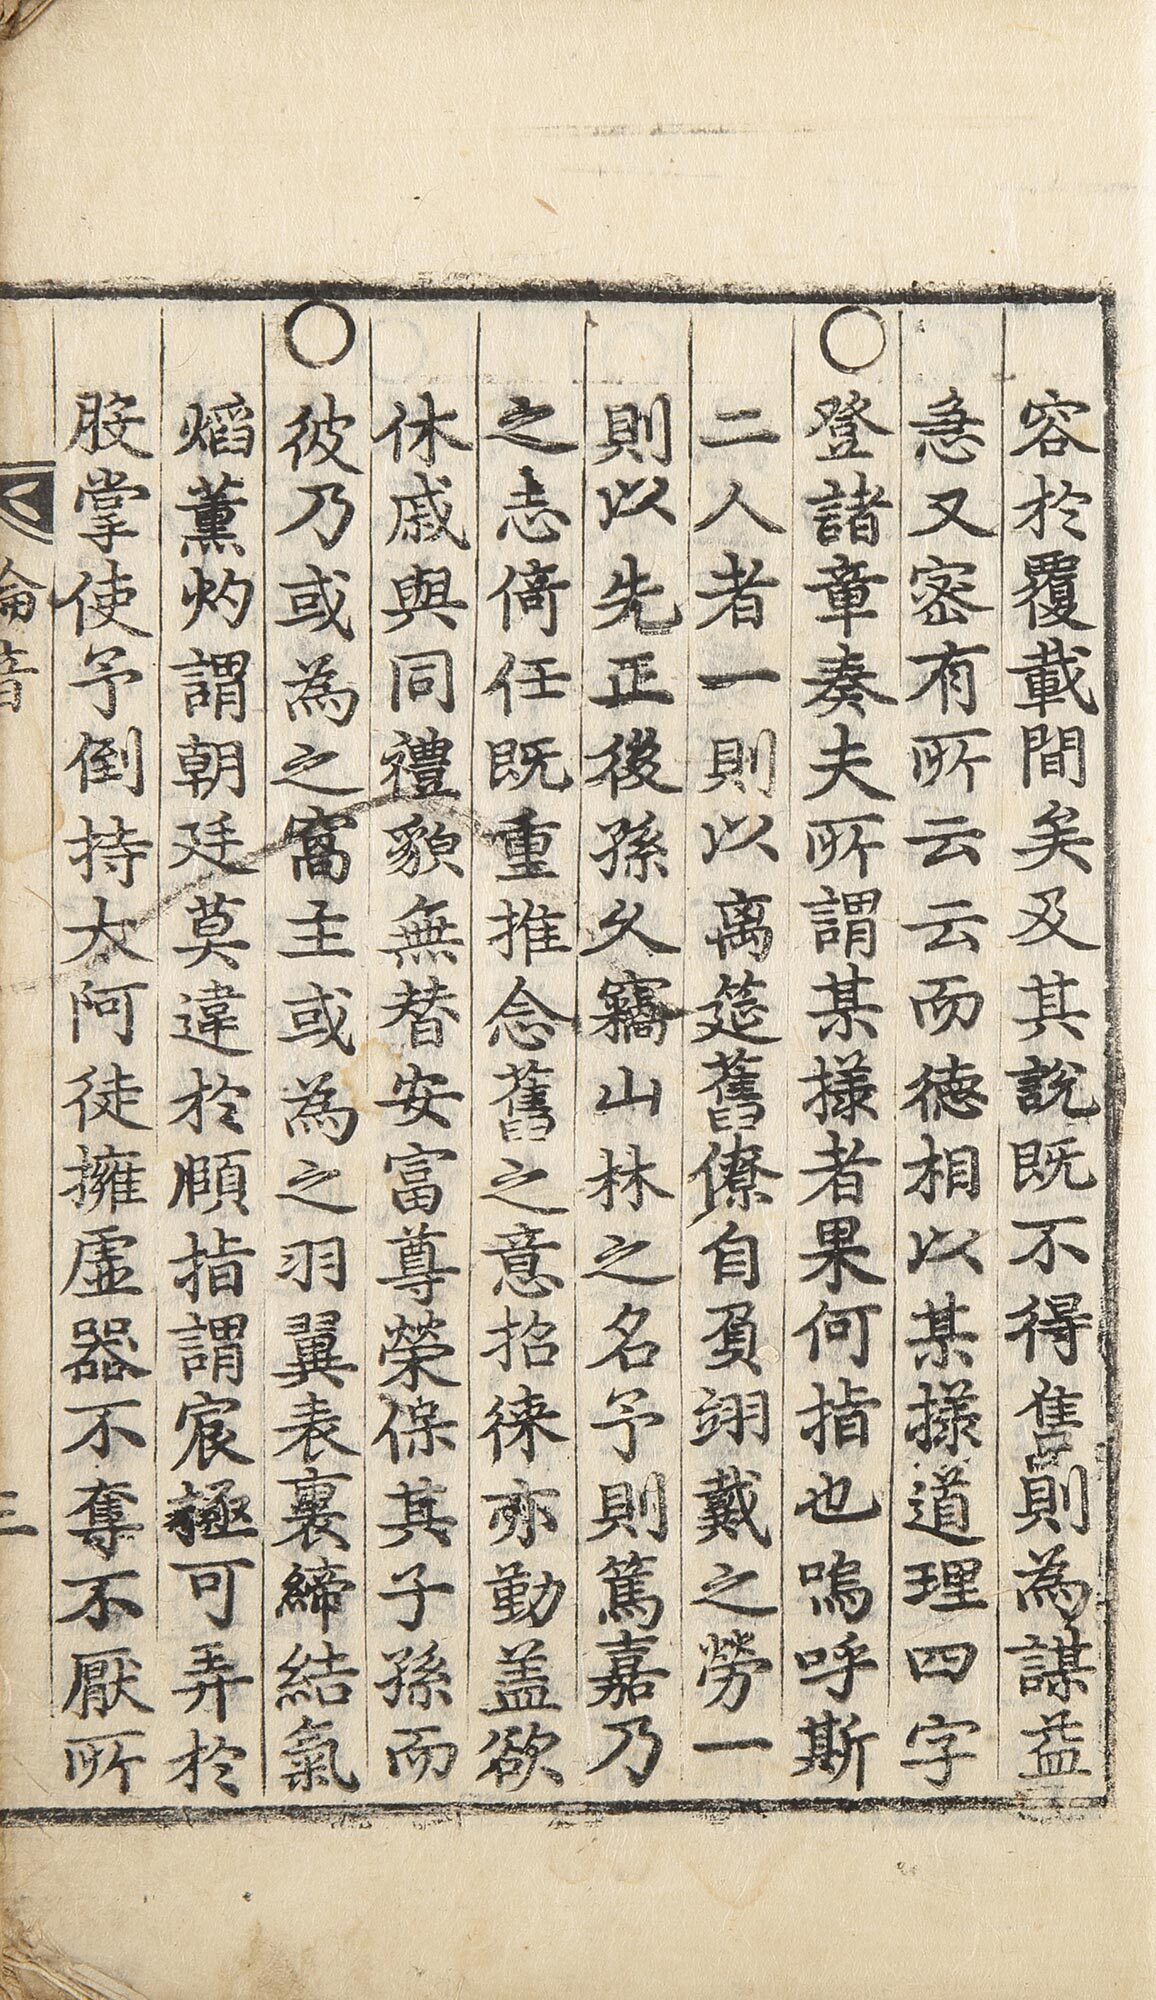 容於覆載間矣及其說既不得售則為謀益
急又密有所云云而德相以某㨾道理四字
○登諸章奏夫所謂某㨾者果何指也嗚呼斯
二人者一則以离筵舊僚自負翊戴之勞一
則以先正後孫久竊山林之名予則篤嘉乃
之志倚任既重推念舊之意招徠亦勤盖欲
休戚與同禮貌無替安富尊榮保其子孫而
○彼乃或為之窩主或為之羽翼表裏締結氣
熖薰灼謂朝廷莫違於頤指謂宸極可弄於
股掌使予倒持太阿徒擁虛器不奪不厭所
綸音
三